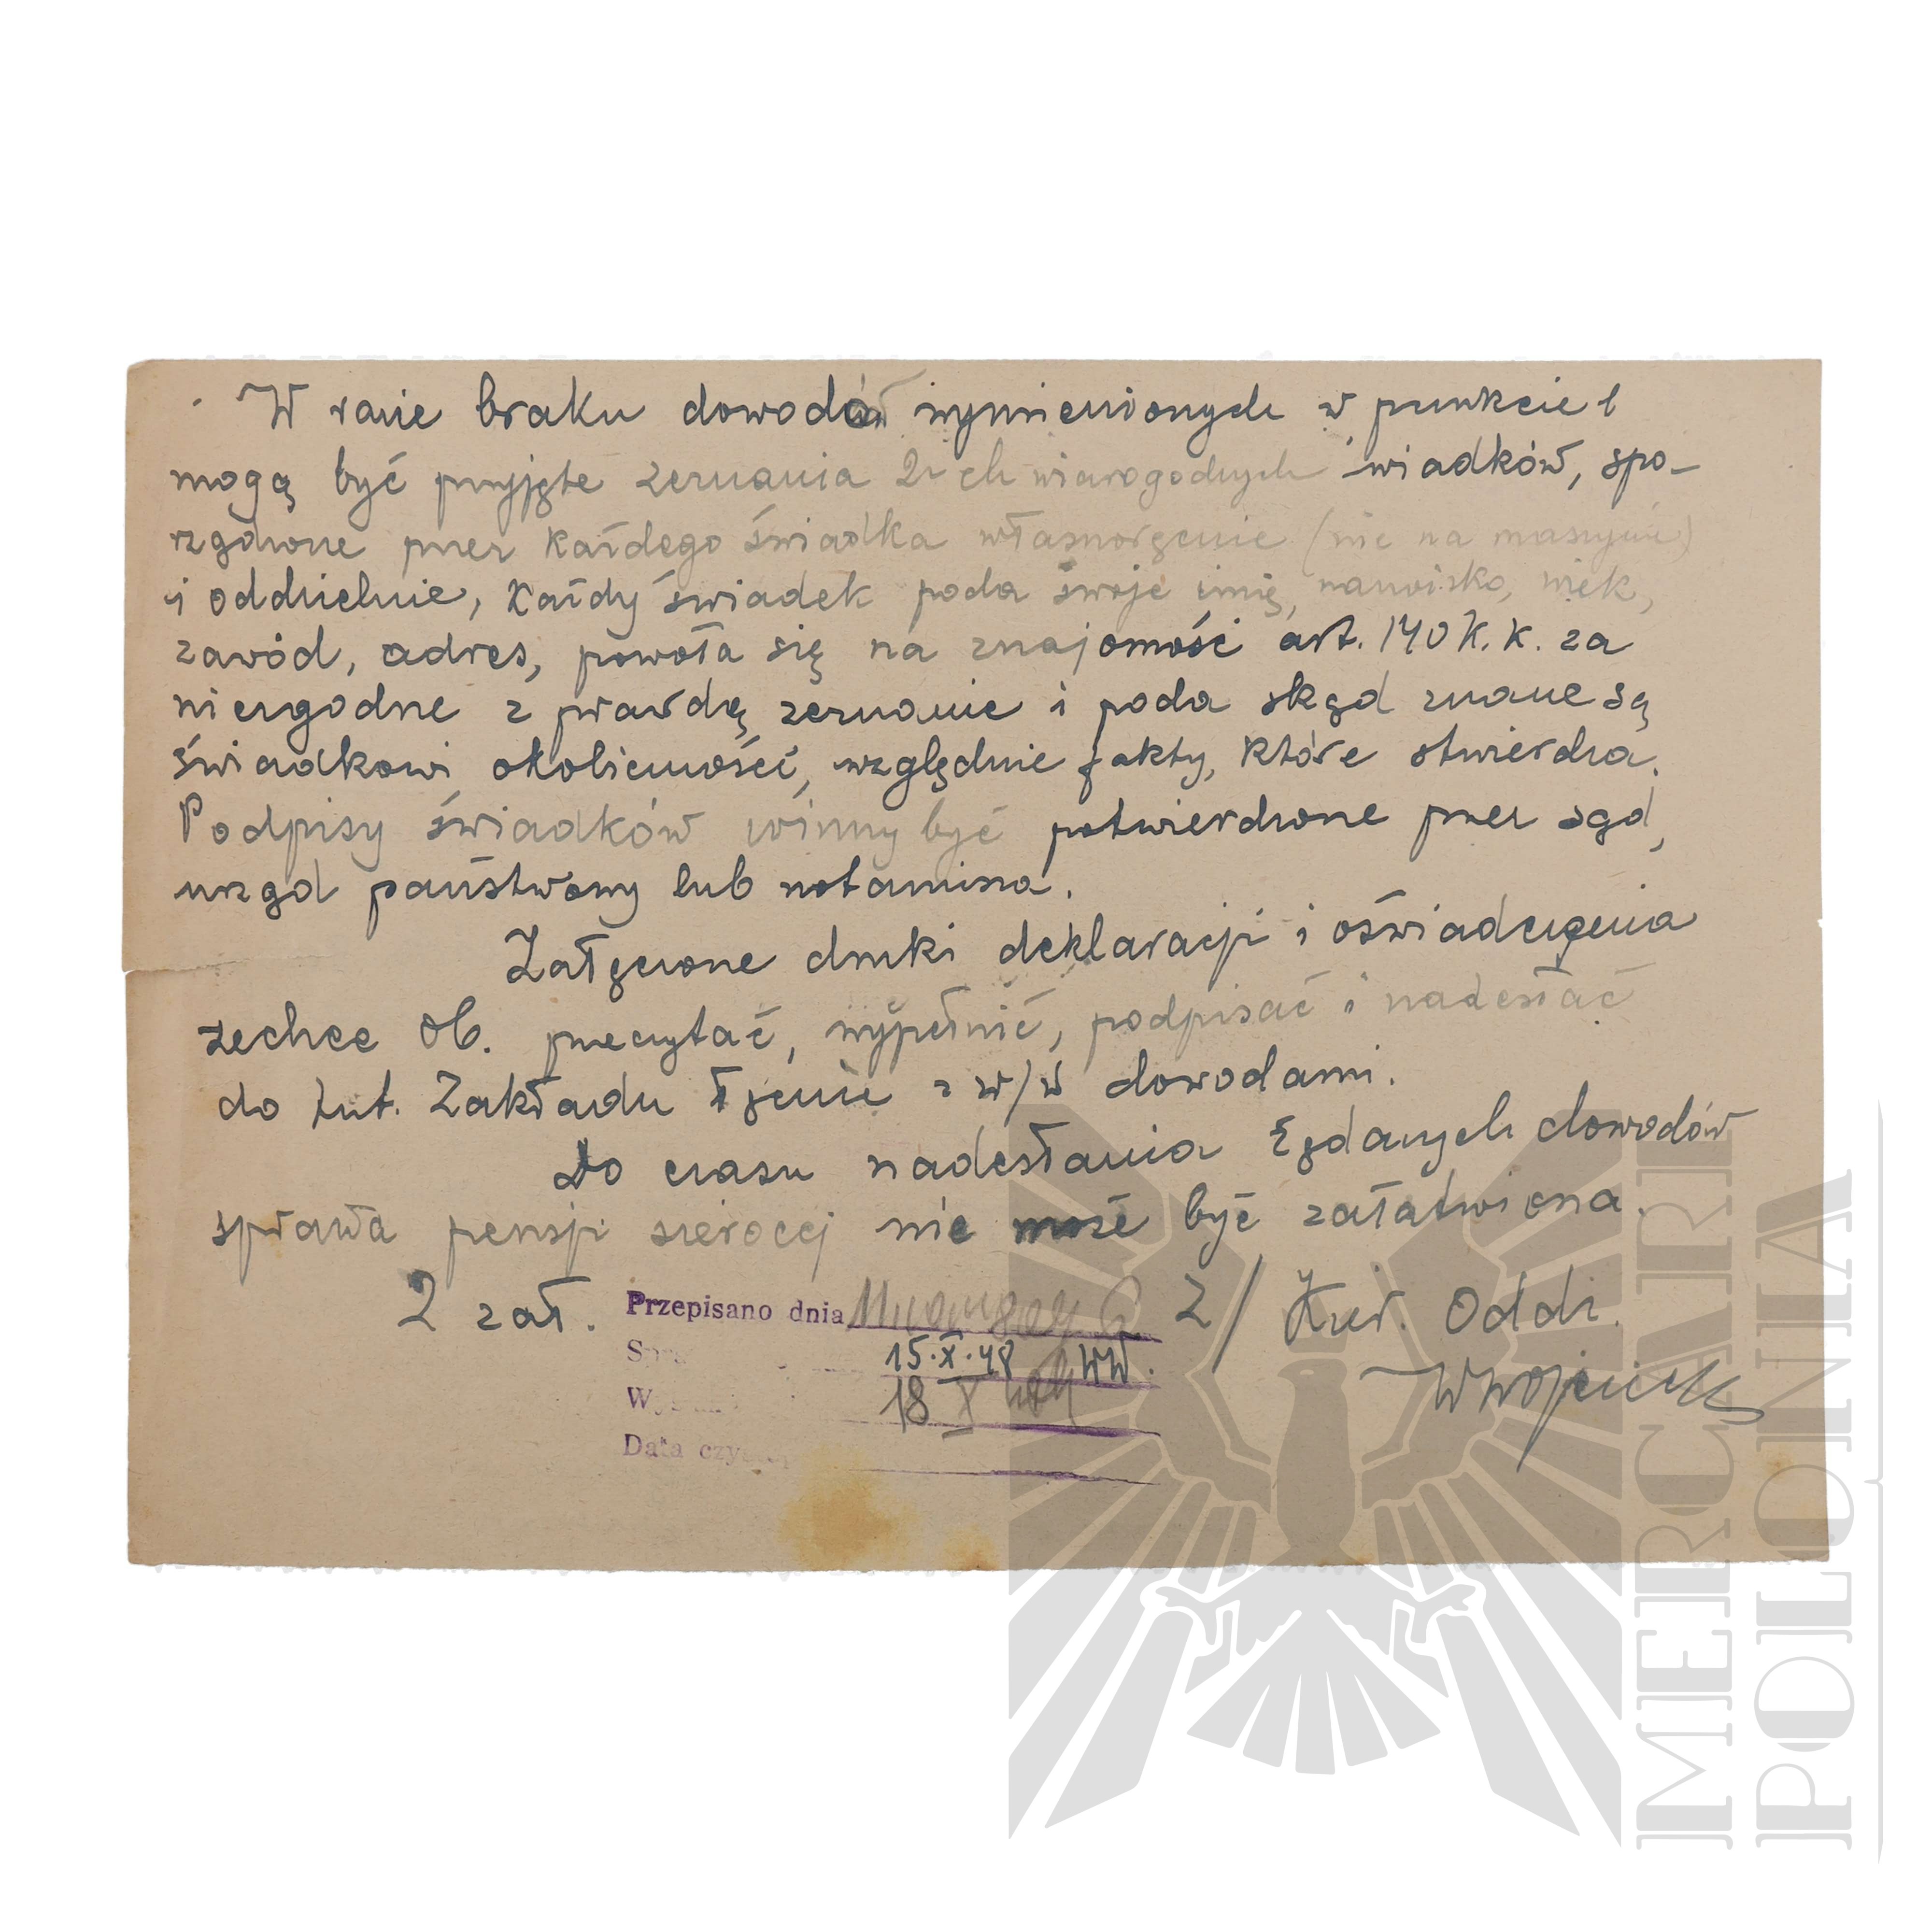 W razie braku dowodów wymienionych w punkcie 1
mogą być przyjęte zeznania 2-ch wiarogodnych świadków, spo-
rządzone przez każdego świadka własnoręcznie (nie na maszynie)
i oddzielnie, każdy świadek poda swoje imię, nazwisko, wiek,
zawód, adres, powoła się na znajomość art. 140 K.K. za
niezgodne z prawdą zeznanie i poda skąd znane są
świadkowi okoliczności, względnie fakty, które stwierdza.
Podpisy świadków winny być potwierdzone przez sąd,
urząd państwowy lub notariusza.
Załączone druki deklaracji i oświadczenia
zechce Ob. przeczytać, wypełnić, podpisać i nadesłać
do tut. Zakładu łącznie z w/w dowodami.
Do czasu nadesłania żądanych dowodów
sprawa pensji sierocej nie może być załatwiona.
2 zał.
Przepisano dnia
15.X.48 WW.
18 X
Data
Z/ Kier. Oddz.
WWójcick
MERCARI
POLONIA